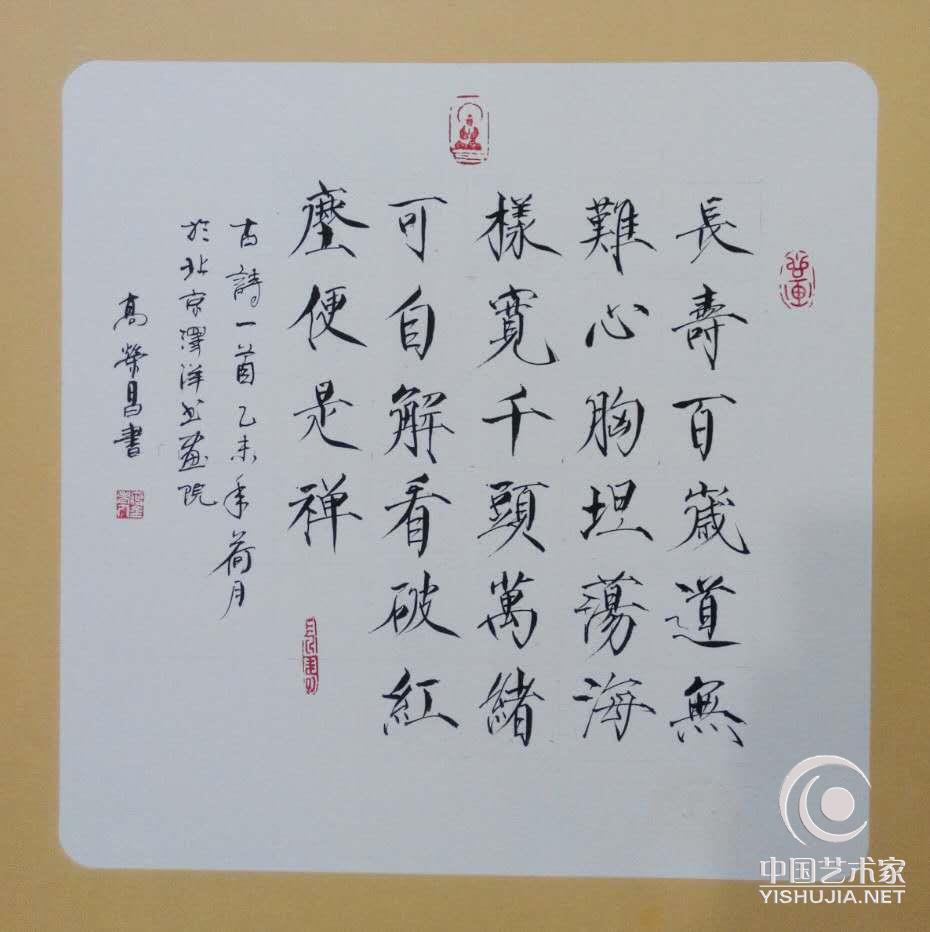 長壽百歲道無
難心胸坦蕩海
樣寬千頭萬緒
可自解看破紅
塵便是禅
古詩一首乙未年荷月
於北京澤洋书画院
高榮昌書
中国艺术家
YISHUJIA.NET